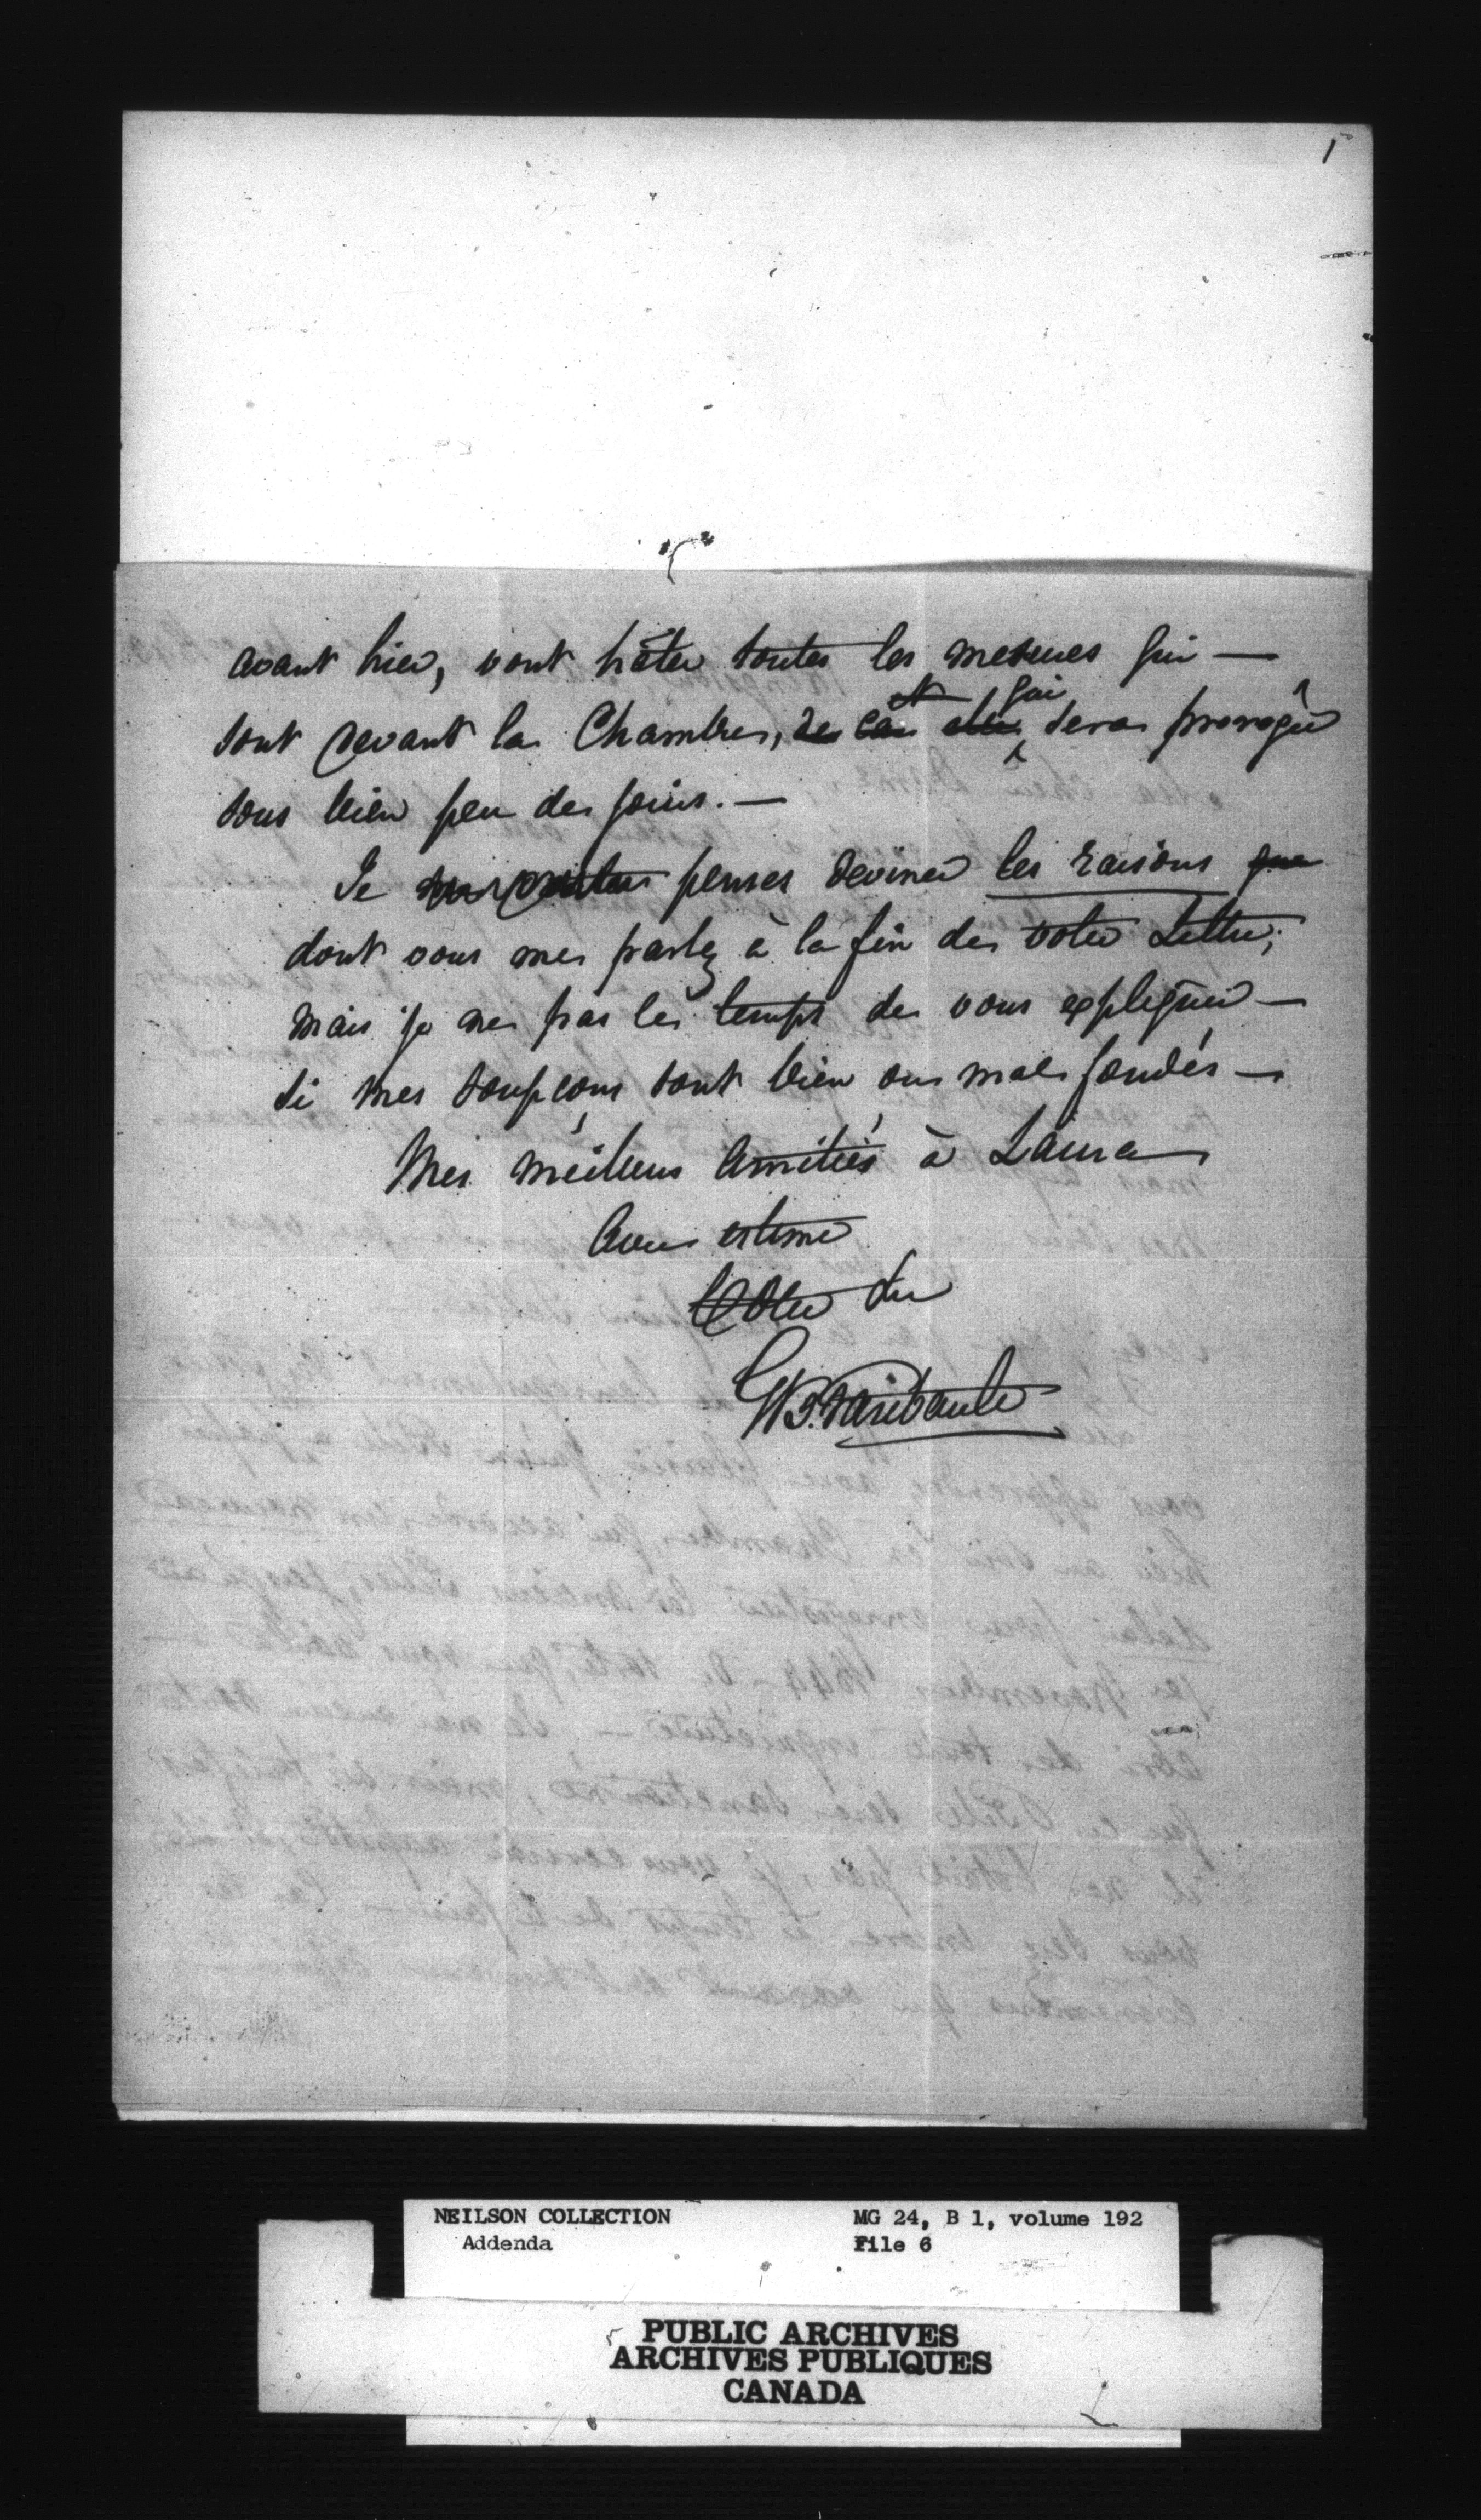 avant hier, vont hâter toutes les mesures qui —
sont devant la Chambre, de et qui sera prorogée
sous bien peu de jours. —
Je pense deviner les raisons que
dont vous me parlez à la fin de votre Lettre;
mais je ne pas le temps de vous expliquer —
si mes soupçons sont bien ou mal fondés —
Mes meilleurs amitiés à Laura
Avec estime
Votre Sr
GB. Faribault
NEILSON COLLECTION MG 24, B 1, volume 192
Addenda File 6
PUBLIC ARCHIVES
ARCHIVES PUBLIQUES
CANADA